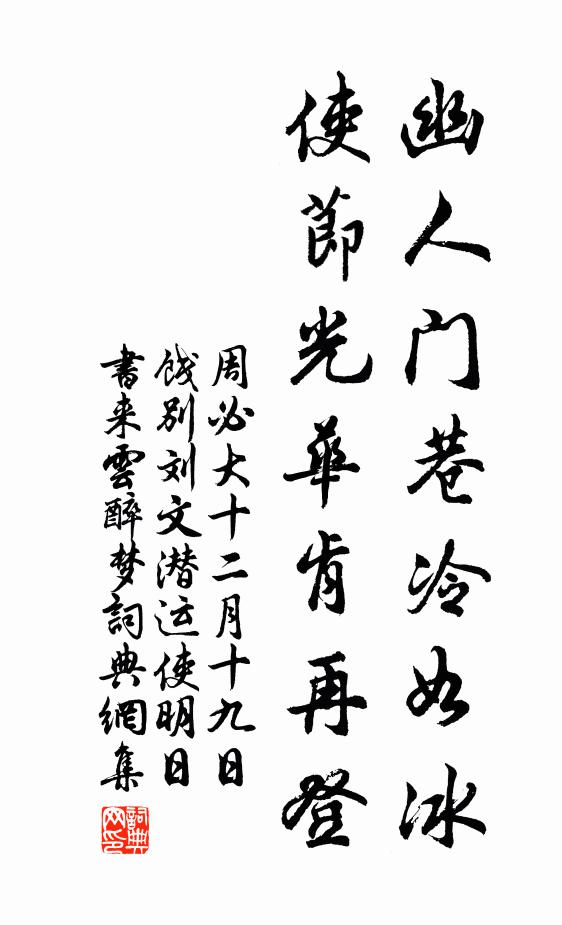 幽人门巷冷如冰
使節光華肯再登
周必大十二月十九日
饯别刘文潜运使明日
書来雲醉梦詞典網集
詞典网印